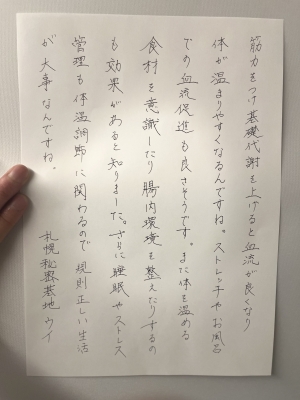 筋力をつけ基礎代謝を上げると血流が良くなり
体が温まりやすくなるんですね。ストレッチやお風呂
での血流促進も良さそうです。また体を温める
食材を意識したり腸内環境を整えたりするの
も効果があると知りました。さらに睡眠やストレス
管理も体温調節に関わるので規則正しい生活
が大事なんですね。
札幌秘密基地ウイ